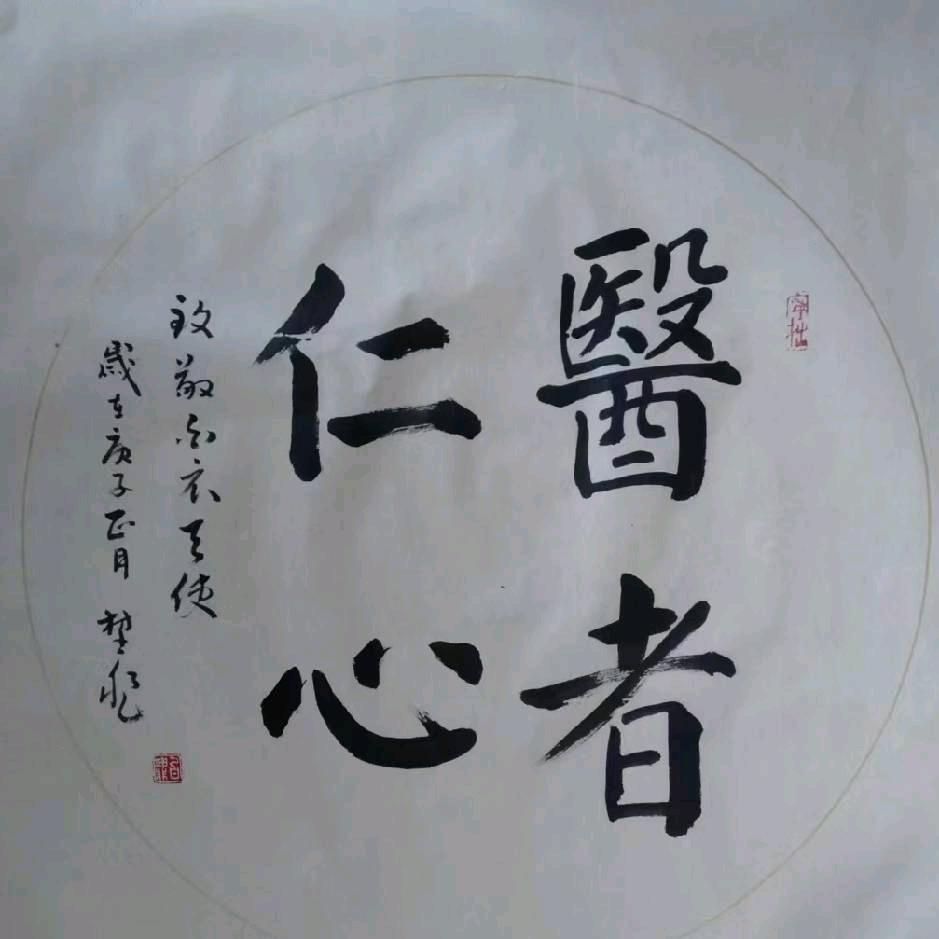 醫者
仁心
致敬白衣天使
歲在庚子正月 楚
寧拙